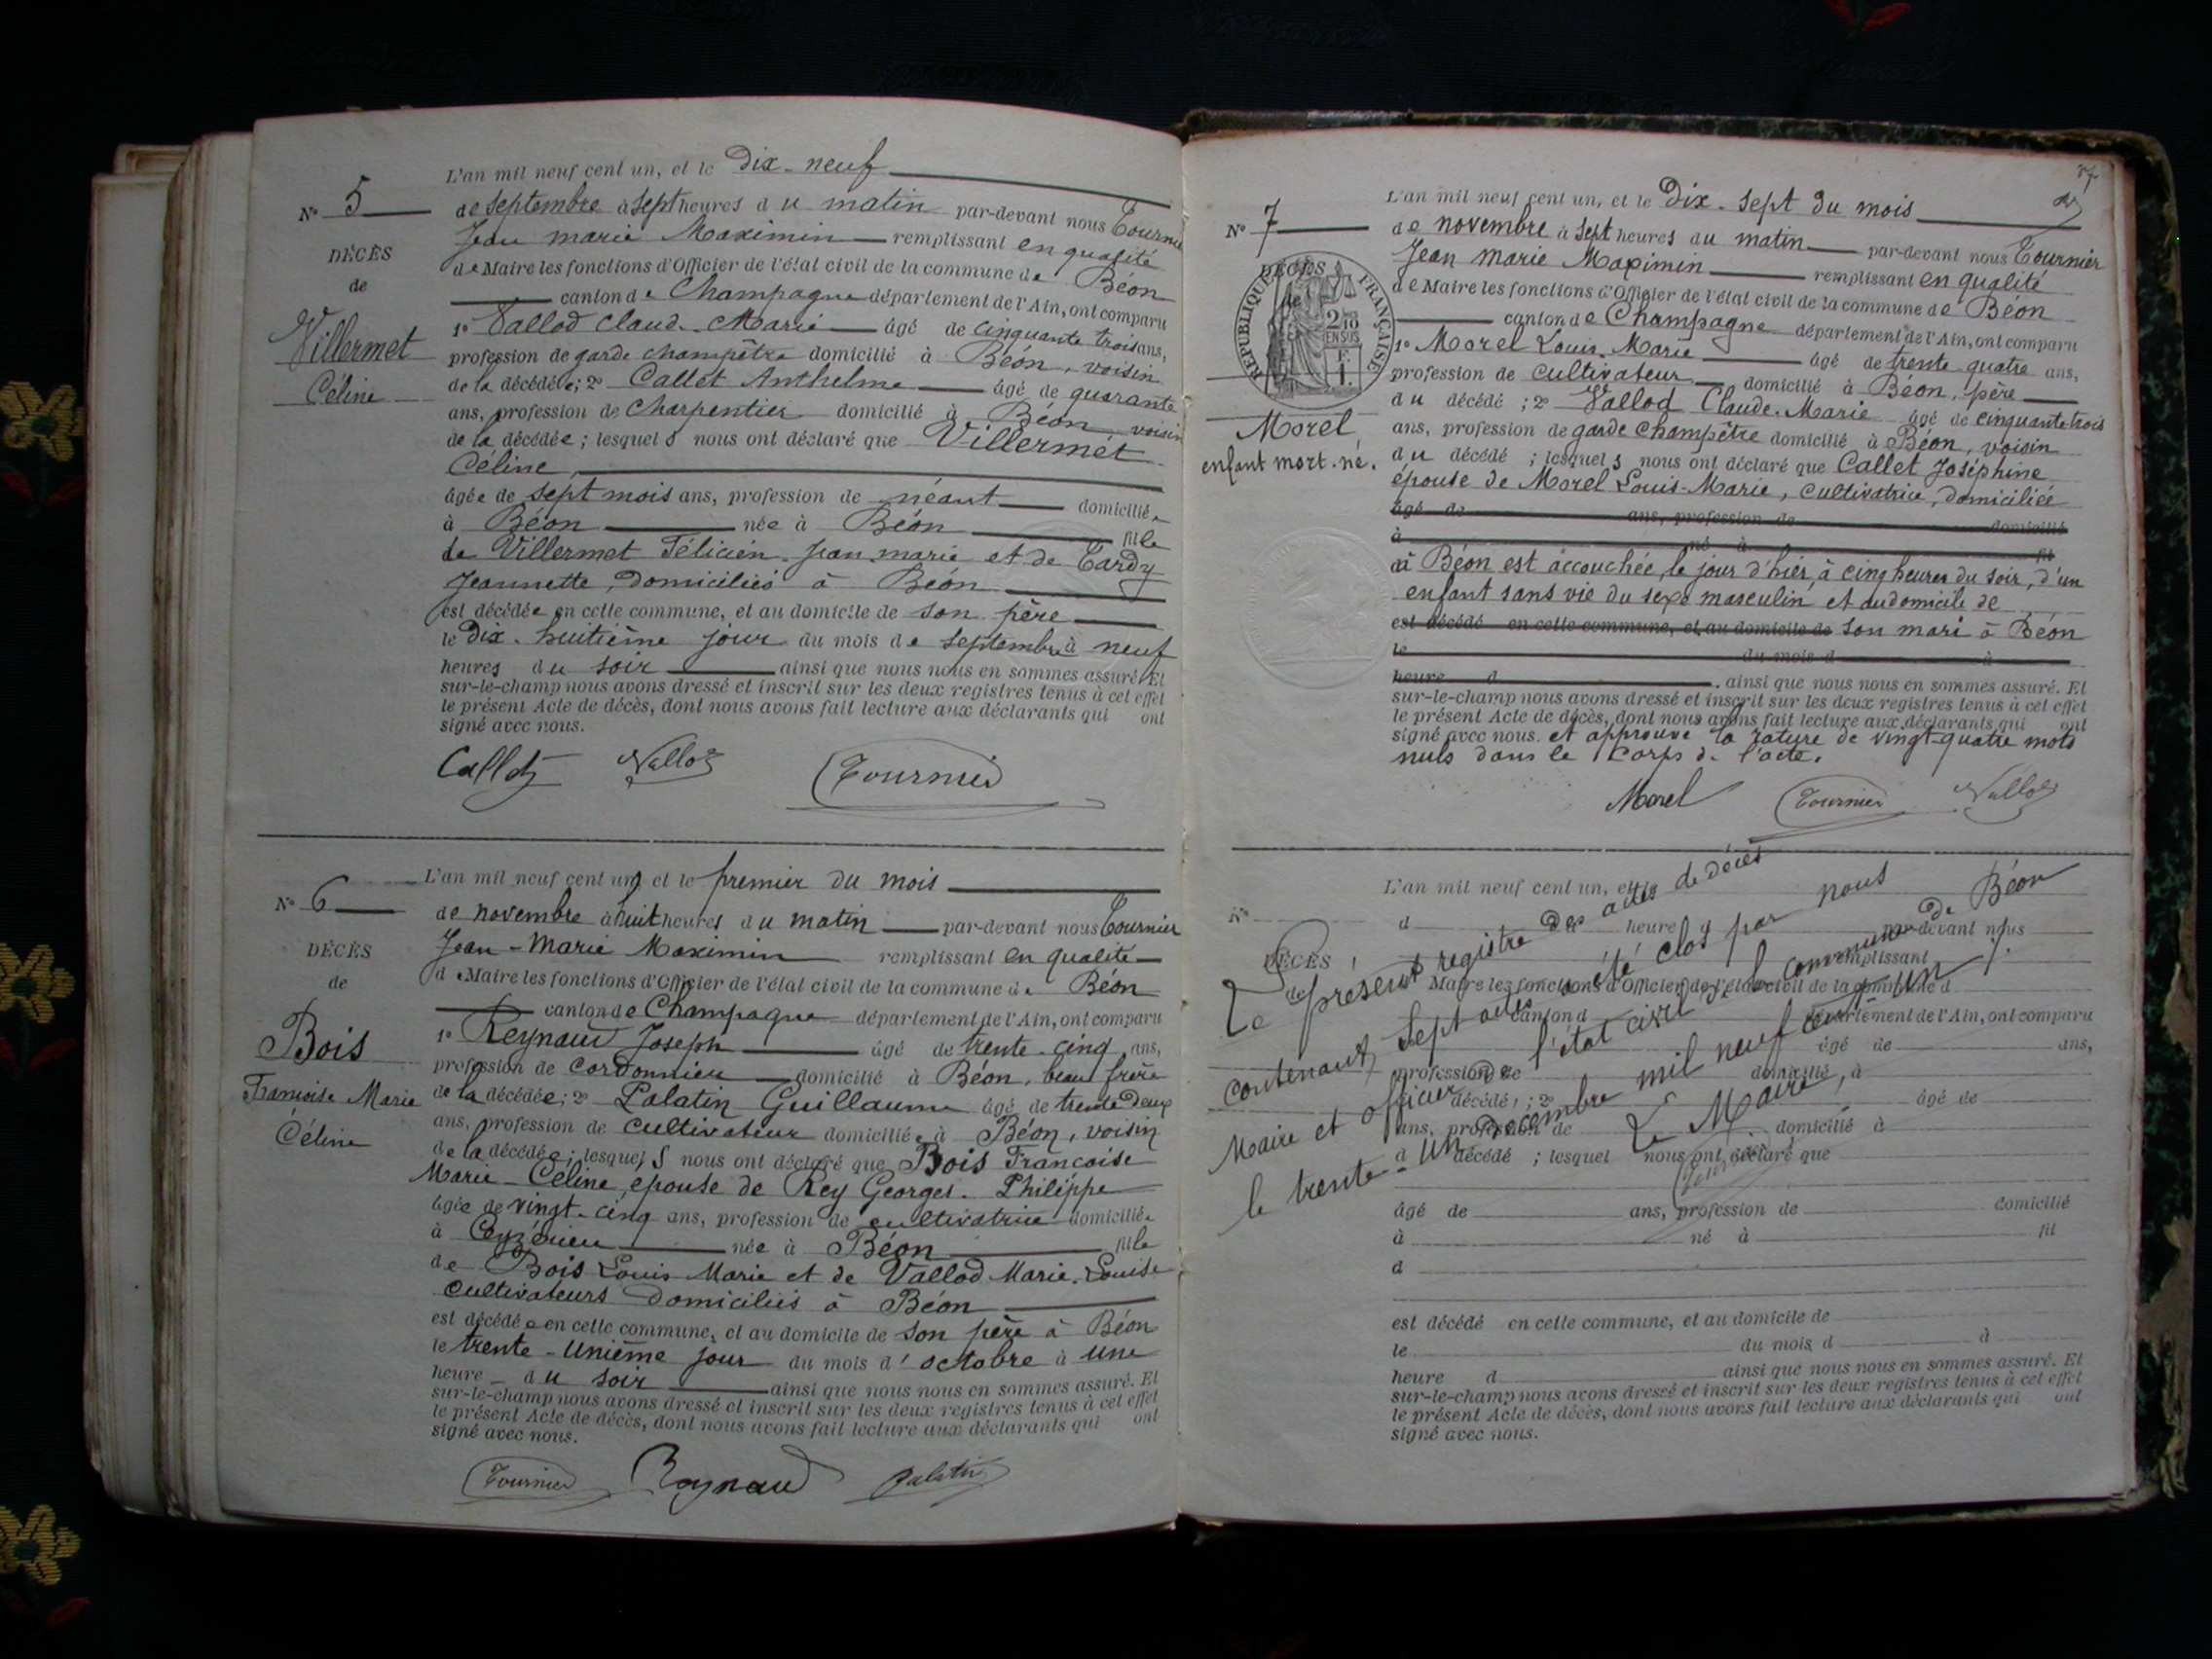 L'an mil neuf cent un, et le Dix-neuf
N° 5
de septembre à sept heures du matin par-devant nous Tournier
Jean marie Maximin remplissant en qualité
DÉCÈS
de Maire les fonctions d'Officier de l'état civil de la commune de Béon
de
canton de Champagne département de l'Ain, ont comparu
Villermet
1° Vallod Claude-Marie âgé de cinquante trois ans,
profession de garde champêtre domicilié à Béon, voisin
Céline
de la décédée; 2° Callet Anthelme âgé de quarante
ans, profession de Charpentier domicilié à Béon voisin
de la décédée; lesquels nous ont déclaré que Villermet
Céline
âgée de sept mois ans, profession de néant domiciliée
à Béon née à Béon fille
de Villermet Félicien Jean-marie et de Tardy
Jeannette, domiciliés à Béon
est décédée en cette commune, et au domicile de son père
le Dix-huitième jour du mois de septembre à neuf
heures du soir ainsi que nous nous en sommes assuré. Et
sur-le-champ nous avons dressé et inscrit sur les deux registres tenus à cet effet
le présent Acte de décès, dont nous avons fait lecture aux déclarants qui ont
signé avec nous.
Callet Vallod Tournier
L'an mil neuf cent un, et le premier du mois
N° 6
de novembre à huit heures du matin par-devant nous Tournier
Jean-Marie Maximin remplissant en qualité
DÉCÈS
de Maire les fonctions d'Officier de l'état civil de la commune de Béon
de
canton de Champagne département de l'Ain, ont comparu
Bois
1° Reynaud Joseph âgé de trente-cinq ans,
profession de cordonnier domicilié à Béon, beau frère
Francoise Marie
de la décédée; 2° Palatin Guillaume âgé de trente deux
Céline
ans, profession de cultivateur domicilié à Béon, voisin
de la décédée; lesquels nous ont déclaré que Bois Francoise
Marie-Céline, épouse de Rey Georges-Philippe
âgée de vingt-cinq ans, profession de cultivatrice domiciliée
à Ceyzérieu née à Béon fille
de Bois Louis-Marie et de Vallod Marie-Louise
cultivateurs domiciliés à Béon
est décédée en cette commune, et au domicile de son père à Béon
le trente-unième jour du mois d'octobre à une
heure du soir ainsi que nous nous en sommes assuré. Et
sur-le-champ nous avons dressé et inscrit sur les deux registres tenus à cet effet
le présent Acte de décès, dont nous avons fait lecture aux déclarants qui ont
signé avec nous.
Tournier Reynaud Palatin
L'an mil neuf cent un, et le Dix-sept du mois
N° 7
de novembre à sept heures du matin par-devant nous Tournier
Jean marie Maximin remplissant en qualité
DÉCÈS
de
RÉPUBLIQUE FRANÇAISE
2/10 EN SUS
F. 1.
de Maire les fonctions d'Officier de l'état civil de la commune de Béon
canton de Champagne département de l'Ain, ont comparu
1° Morel Louis-Marie âgé de trente quatre ans,
profession de cultivateur domicilié à Béon, père
du décédé; 2° Vallod Claude-Marie âgé de cinquante-trois
Morel
ans, profession de garde champêtre domicilié à Béon, voisin
enfant mort-né.
du décédé; lesquels nous ont déclaré que Callet Joséphine
épouse de Morel Louis-Marie, cultivatrice, domiciliée
âgé de ans, profession de domicilié
à né à fil
à Béon est accouchée, le jour d'hier, à cinq heures du soir, d'un
enfant sans vie du sexe masculin et au domicile de
est décédé en cette commune, et au domicile de son mari à Béon
le du mois d à
heure d ainsi que nous nous en sommes assuré. Et
sur-le-champ nous avons dressé et inscrit sur les deux registres tenus à cet effet
le présent Acte de décès, dont nous avons fait lecture aux déclarants qui ont
signé avec nous. et approuvé la rature de vingt-quatre mots
nuls dans le corps de l'acte.
Morel Tournier Vallod
L'an mil neuf cent un, et le
N° d heure par-devant nous
DÉCÈS remplissant
de Maire les fonctions d'Officier de l'état civil de la commune d
canton d département de l'Ain, ont comparu
âgé de ans,
profession de domicilié à
décédé; 2° âgé de
ans, profession de domicilié à
d décédé; lesquel nous ont déclaré que
Le présent registre des actes de décès
contenant sept actes a été clos par nous
Maire et officier de l'état civil de la commune de Béon
le trente-un décembre mil neuf cent-un.
Le Maire,
Tournier
âgé de ans, profession de domicilié
à né à fil
d
est décédé en cette commune, et au domicile de
le du mois d à
heure d ainsi que nous nous en sommes assuré. Et
sur-le-champ nous avons dressé et inscrit sur les deux registres tenus à cet effet
le présent Acte de décès, dont nous avons fait lecture aux déclarants qui ont
signé avec nous.